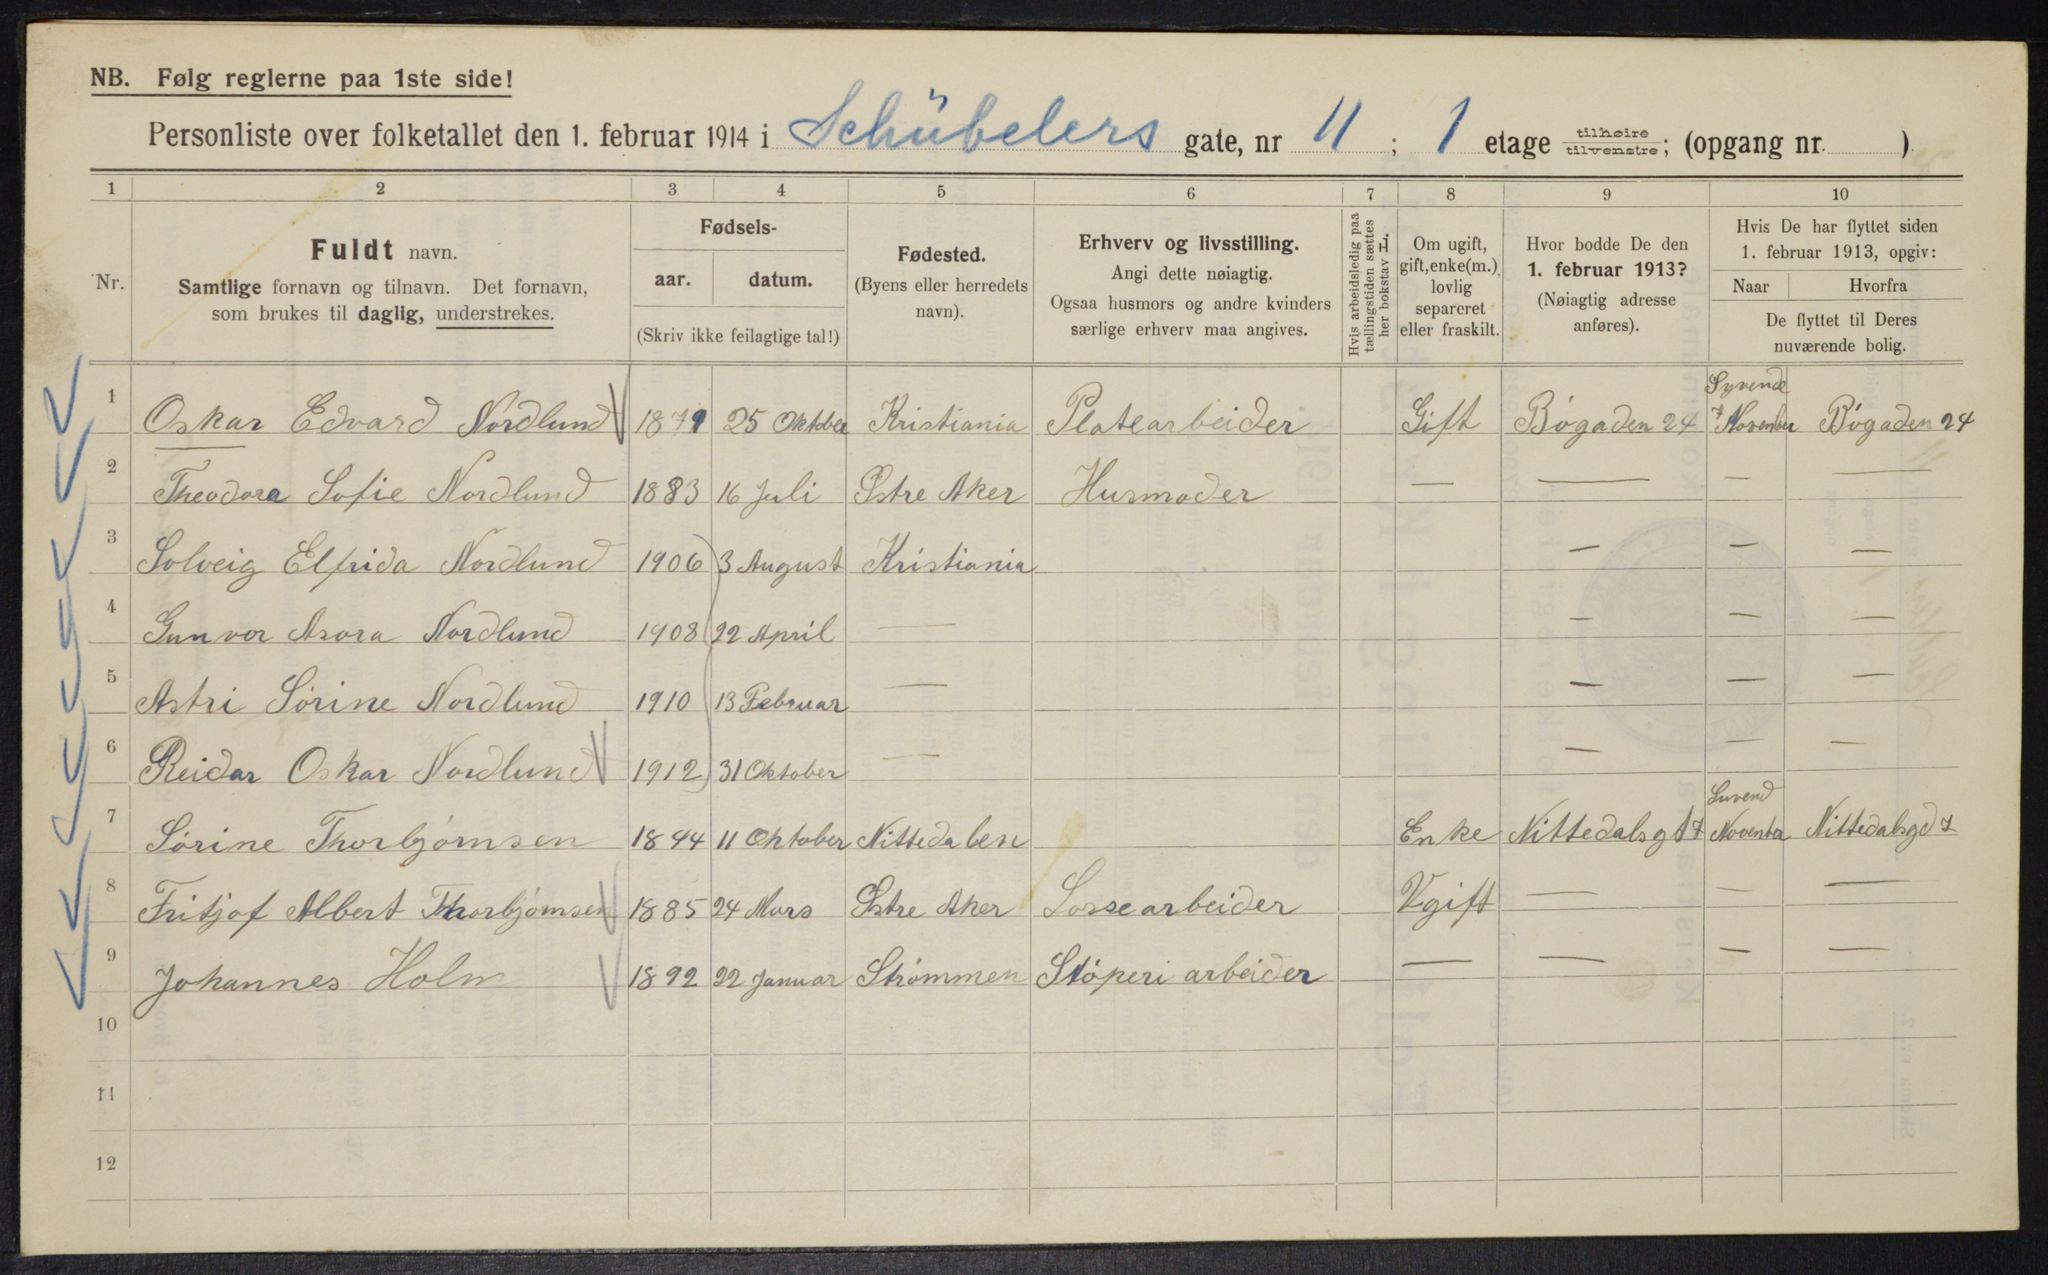 NB. Følg reglerne paa 1ste side!
Personliste over folketallet den 1. februar 1914 i Schübelers gate, nr 11 ; 1 etage tilhøire tilvenstre; (opgang nr. )
1 2 3 4 5 6 7 8 9 10
Nr.
Fuldt navn.
Samtlige fornavn og tilnavn. Det fornavn,
som brukes til daglig, understrekes.
Fødsels-
aar. datum.
(Skriv ikke feilagtige tal!)
Fødested.
(Byens eller herredets
navn).
Erhverv og livsstilling.
Angi dette nøiagtig.
Ogsaa husmors og andre kvinders
særlige erhverv maa angives.
Hvis arbeidsledig paa
tællingstiden sættes
her bokstav L.
Om ugift,
gift, enke(m.),
lovlig
separeret
eller fraskilt.
Hvor bodde De den
1. februar 1913?
(Nøiagtig adresse
anføres).
Hvis De har flyttet siden
1. februar 1913, opgiv:
Naar Hvorfra
De flyttet til Deres
nuværende bolig.
Syvende
1 Oskar Edvard Nordlund 1879 25 Oktober Kristiania Platearbeider Gift Bøgaden 24 7 November Bøgaden 24
2 Theodora Sofie Nordlund 1883 16 Juli Østre Aker Husmoder — — — —
3 Solveig Elfrida Nordlund 1906 3 August Kristiania — — —
4 Gunvor Asora Nordlund 1908 22 April — — — —
5 Astri Sørine Nordlund 1910 13 Februar — — — —
6 Reidar Oskar Nordlund 1912 31 Oktober — — — —
7 Sørine Thorbjørnsen 1844 11 Oktober Nittedalen Enke Nittedalsgt 7 November Nittedalsgd 7
8 Fritjof Albert Thorbjørnsen 1885 24 Mars Østre Aker Lossearbeider Ugift — — —
9 Johannes Holm 1892 22 Januar Strømmen Støperi arbeider — — — —
10
11
12